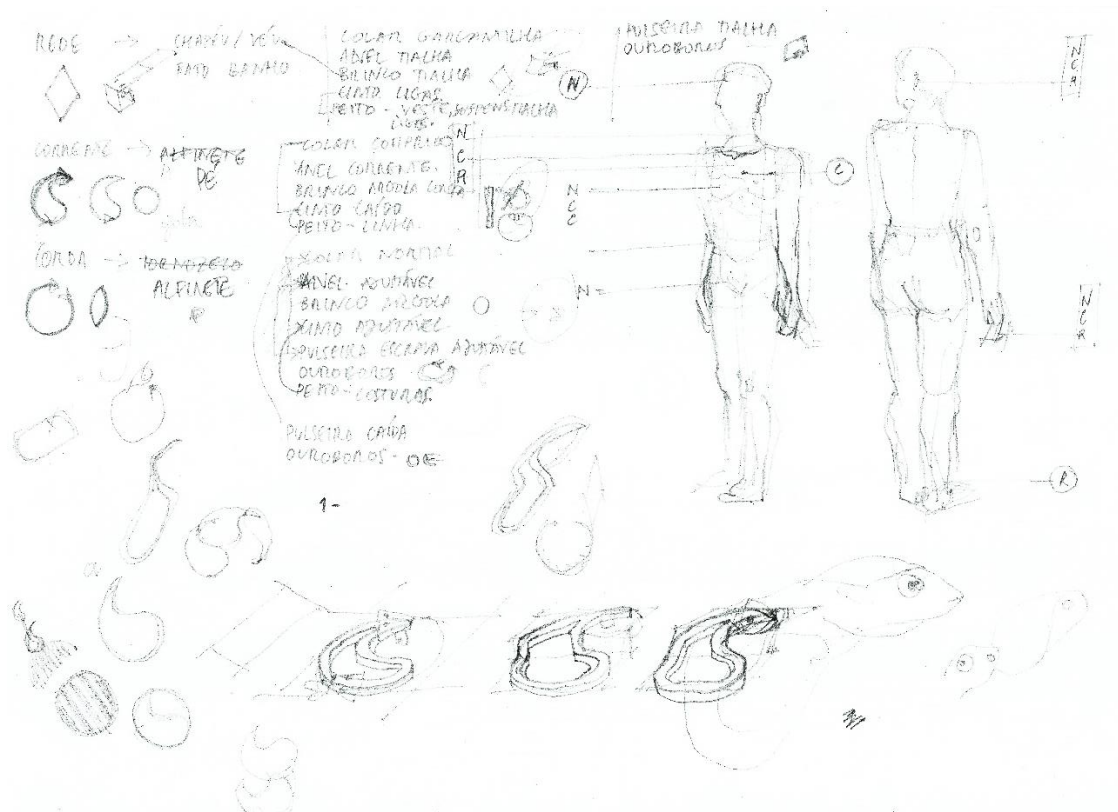 REDE → CHAPÉU / VÉU
FATO BANHO
COLAR GARGANTILHA
ANEL MALHA
BRINCO MALHA
CINTO LIGAS
PEITO - VESTE, SUSPENS MALHA
LIGAS.
PULSEIRA MALHA
OUROBOROS
N
N
C
R
CORRENTE → ALFINETE
DE
COLAR COMPRIDO
ANEL CORRENTE.
BRINCO ARGOLA
CINTO CAÍDO
PEITO - LINHA.
N
C
R
N
C
C
C
CORDA → TORNOZELO
ALFINETE
COLAR NORMAL
ANEL AJUSTÁVEL
BRINCO ARGOLA
CINTO AJUSTÁVEL.
PULSEIRA ESCRAVA AJUSTÁVEL
OUROBOROS
PEITO - COSTURAS.
N
N
C
R
PULSEIRA CAÍDA
OUROBOROS -
R
1-